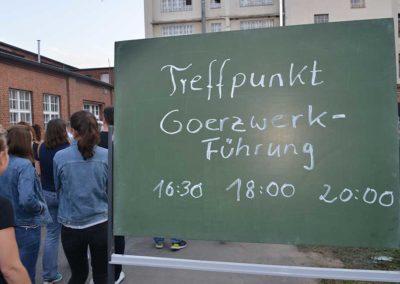 Treffpunkt
Goerzwerk-
Führung
16:30 18:00 20:00